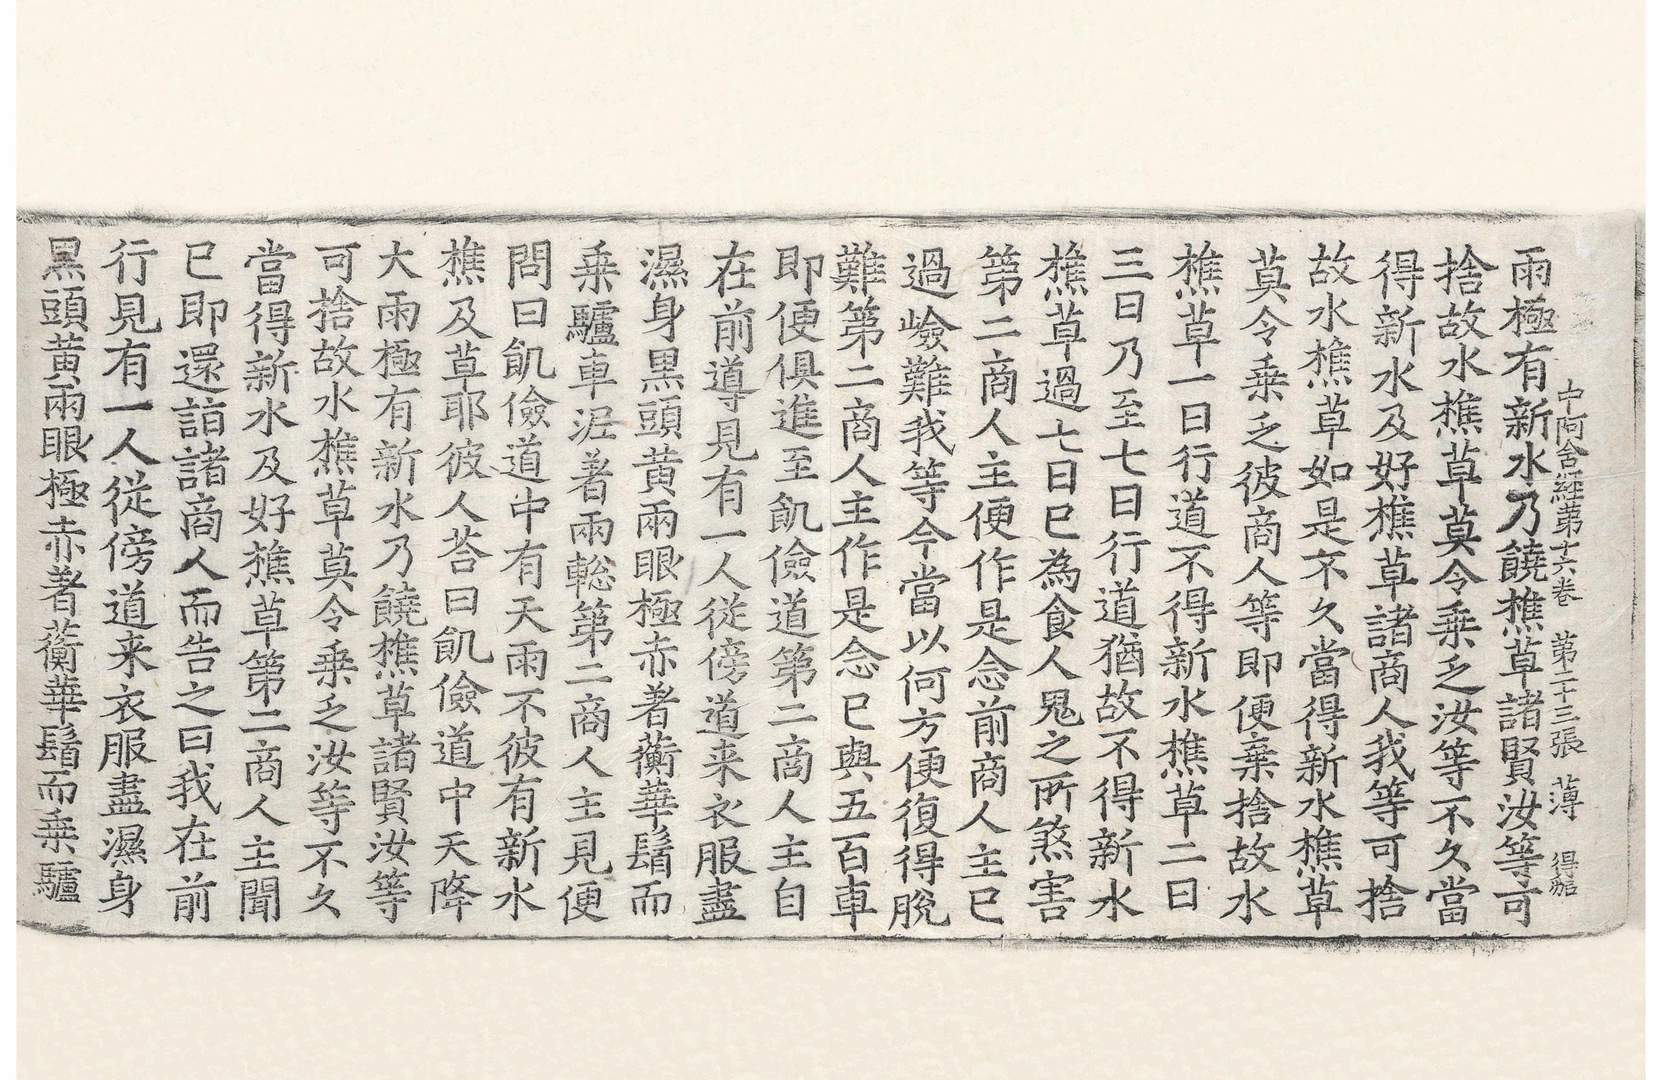 中阿含經第十六卷 第二十三張 薄 得
雨極有新水乃饒樵草諸賢汝等可
捨故水樵草莫令乗乏汝等不久當
得新水及好樵草諸商人我等可捨
故水樵草如是不久當得新水樵草
莫令乗乏彼商人等即便棄捨故水
樵草一日行道不得新水樵草二日
三日乃至七日行道猶故不得新水
樵草過七日已為食人鬼之所煞害
第二商人主便作是念前商人主已
過嶮難我等今當以何方便復得脫
難第二商人主作是念已與五百車
即便俱進至飢儉道第二商人主自
在前導見有一人從傍道来衣服盡
濕身黒頭黄兩眼極赤著蘅華鬘而
乗驢車泥著兩輗第二商人主見便
問曰飢儉道中有天雨不彼有新水
樵及草耶彼人荅曰飢儉道中天降
大雨極有新水乃饒樵草諸賢汝等
可捨故水樵草莫令乗乏汝等不久
當得新水及好樵草第二商人主聞
已即還詣諸商人而告之曰我在前
行見有一人從傍道来衣服盡濕身
黒頭黄兩眼極赤著蘅華鬘而乗驢